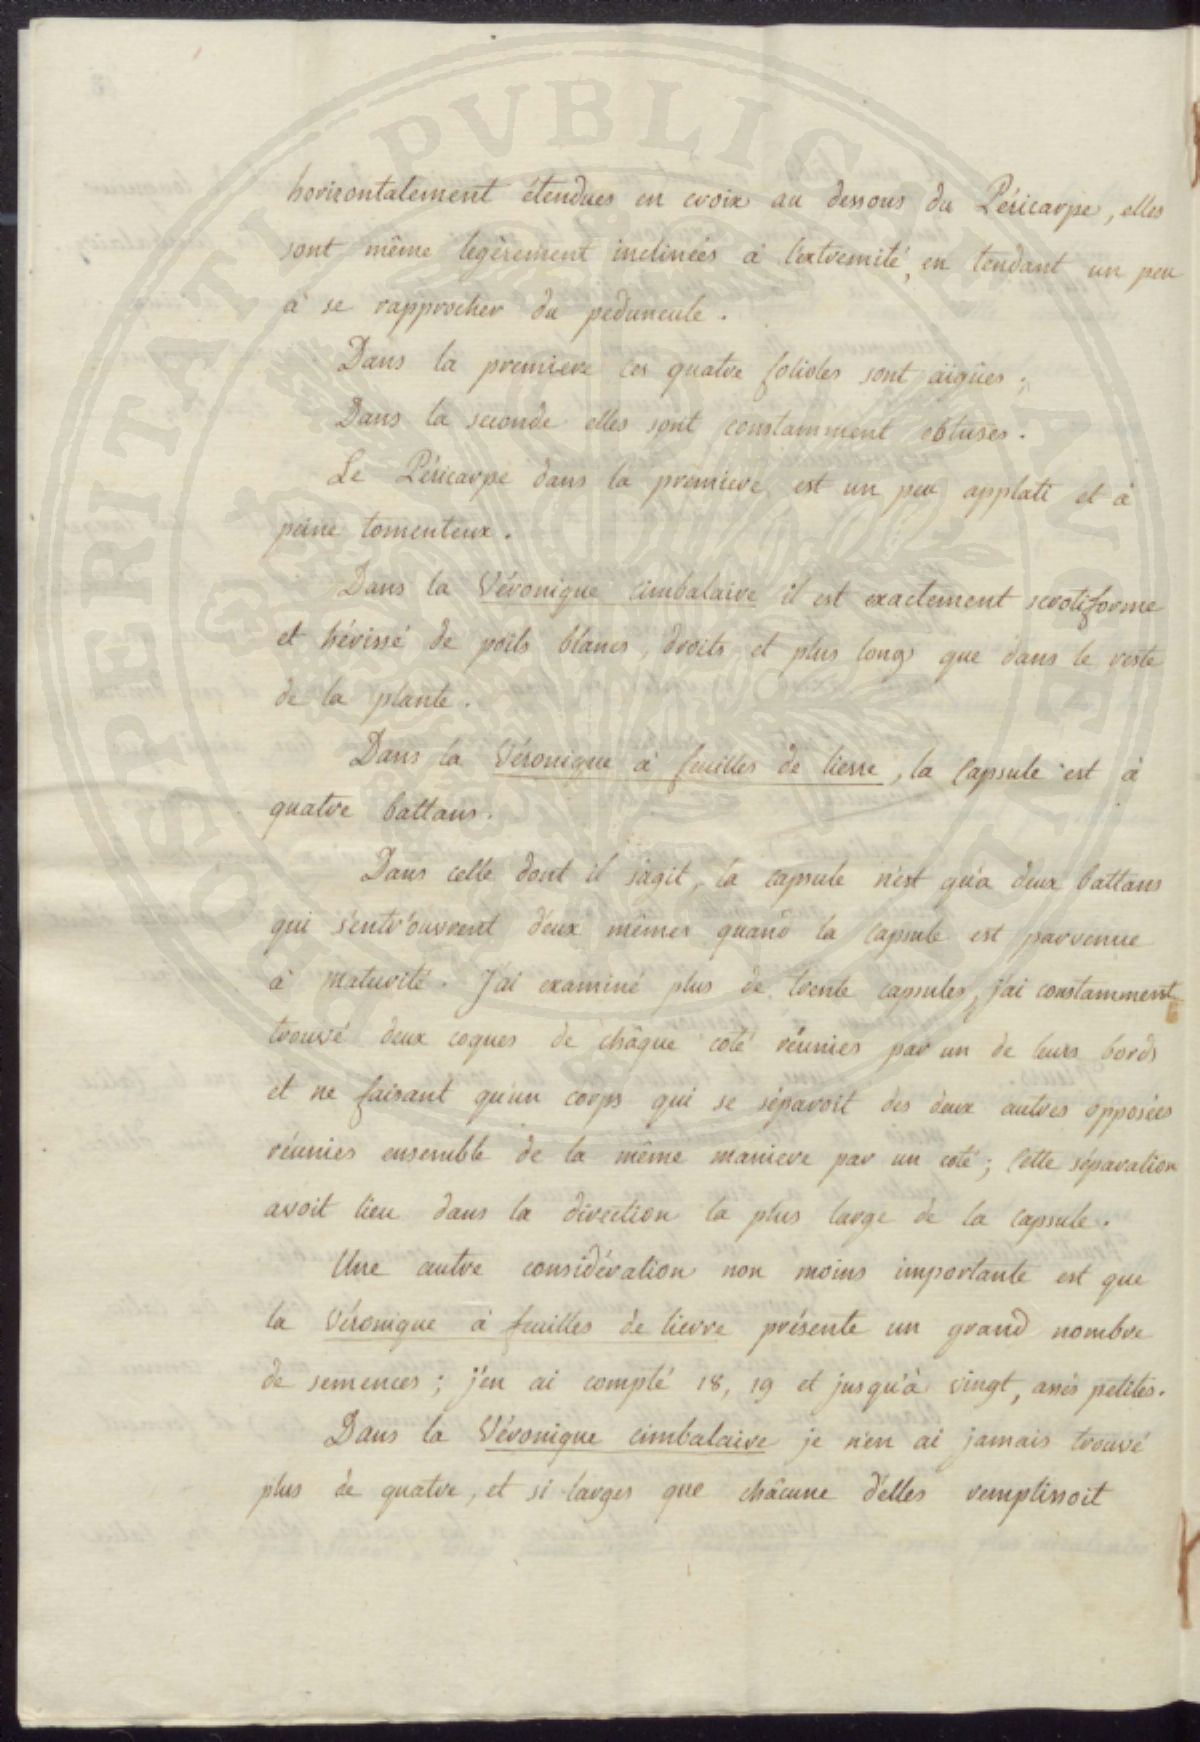 horizontalement étendues en croix au dessous du Péricarpe, elles
sont même legèrement inclinées à l'extremité, en tendant un peu
à se rapprocher du peduncule.
Dans la premiere ces quatre folioles sont aigües;
Dans la seconde elles sont constamment obtuses.
Le Péricarpe dans la premiere est un peu applati et à
peine tomenteux.
Dans la Véronique cimbalaire il est exactement scrotiforme
et hérissé de poils blancs, droits et plus longs que dans le reste
de la plante.
Dans la Véronique à feuilles de lierre, la capsule est à
quatre battans.
Dans celle dont il s'agit, la capsule n'est qu'à deux battans
qui s'entr'ouvrent d'eux mêmes quand la capsule est parvenue
à maturité. J'ai examiné plus de trente capsules, j'ai constamment
trouvé deux coques de châque coté réunies par un de leurs bords
et ne faisant qu'un corps qui se séparoit des deux autres opposées
réunies ensemble de la même maniere par un coté; cette séparation
avoit lieu dans la direction la plus large de la capsule.
Une autre considération non moins importante est que
la Véronique à feuilles de lierre présente un grand nombre
de semences; j'en ai compté 18, 19 et jusqu'à vingt, assés petites.
Dans la Véronique cimbalaire je n'en ai jamais trouvé
plus de quatre, et si larges que châcune d'elles remplissoit
PROSPERITATI PUBLICAE AUGENDAE